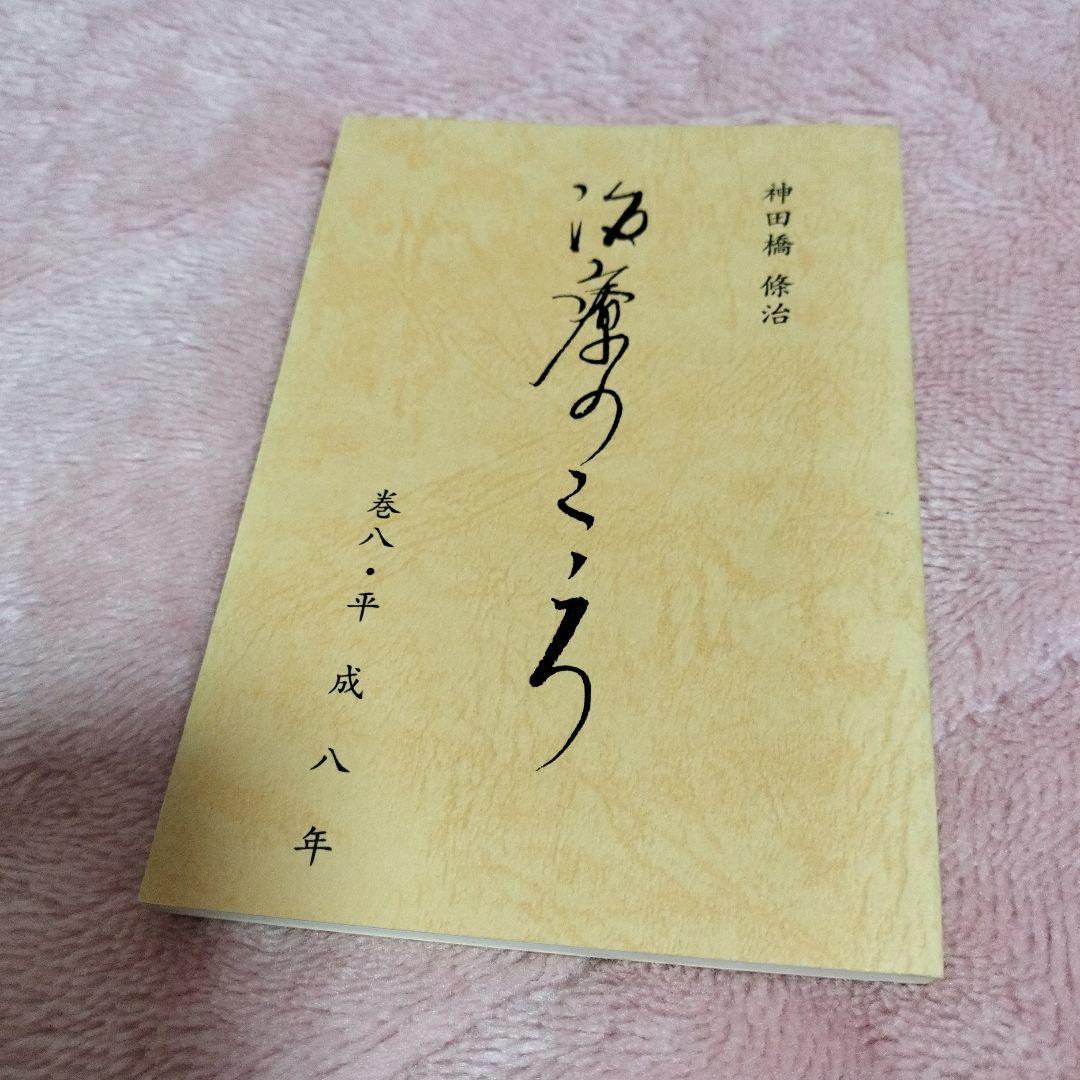 神田橋 條治
治療のこゝろ
巻八・平成八年